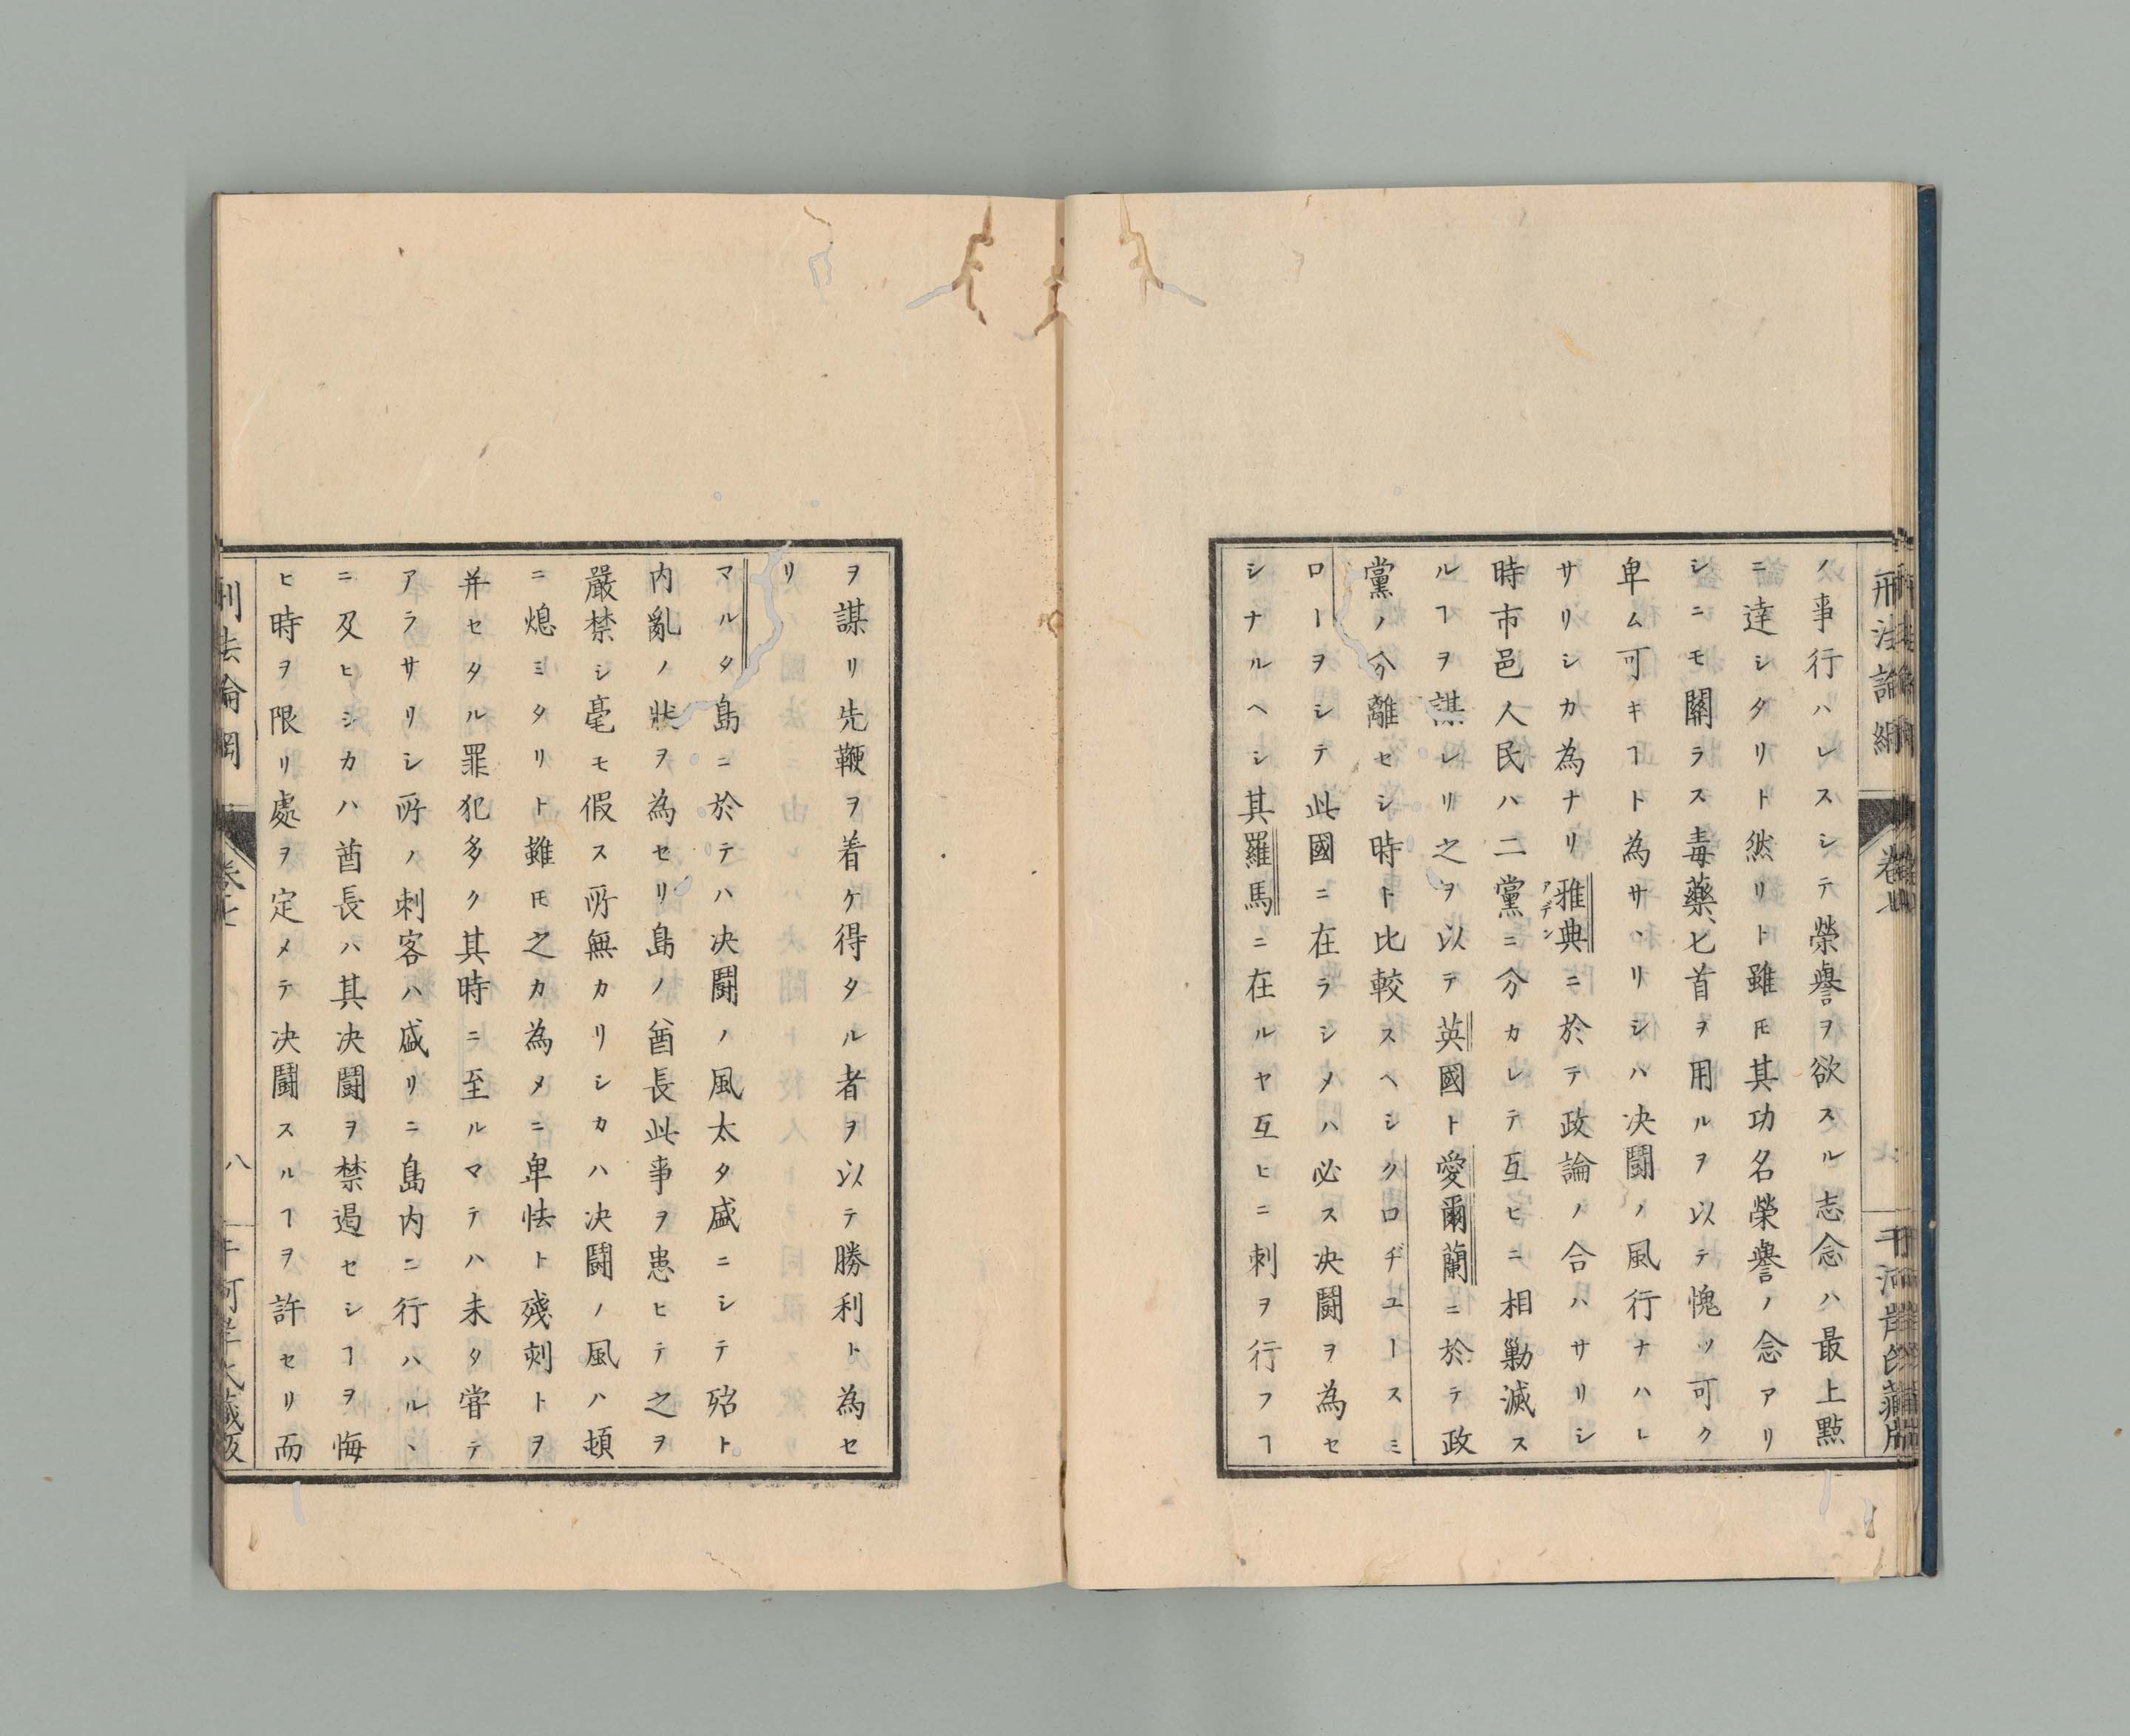 刑法論綱
卷七
千河岸氏藏版
ノ事行ハレスシテ榮譽ヲ欲スル志念ハ最上點
ニ達シタリト然リト雖モ其功名榮譽ノ念アリ
シニモ關ラス毒藥、匕首ヲ用ルヲ以テ愧ツ可ク
卑ム可キヿト為サヽリシハ决鬪ノ風行ナハレ
サリシカ為ナリ雅典ニ於テ政論ノ合ハサリシ
アデン
時市邑人民ハ二黨ニ分カレテ互ヒニ相勦滅ス
ルヿヲ謀レリ之ヲ以テ英國ト愛爾蘭ニ於テ政
黨ノ分離セシ時ト比較スヘシクロヂユースミ
ローヲシテ此國ニ在ラシメハ必ス决鬪ヲ為セ
シナルヘシ其羅馬ニ在ルヤ互ヒニ刺ヲ行フヿ
ヲ謀リ先鞭ヲ着ケ得タル者ヲ以テ勝利ト為セ
リ
マルタ島ニ於テハ决鬪ノ風太タ盛ニシテ殆ト
内亂ノ狀ヲ為セリ島ノ酋長此事ヲ患ヒテ之ヲ
嚴禁シ毫モ假ス所無カリシカハ决鬪ノ風ハ頓
ニ熄ミタリト雖モ之カ為メニ卑怯ト殘刻トヲ
并セタル罪犯多ク其時ニ至ルマテハ未タ甞テ
アラサリシ所ノ刺客ハ盛リニ島内ニ行ハルヽ
ニ及ヒシカハ酋長ハ其决鬪ヲ禁遏セシヿヲ悔
ヒ時ヲ限リ處ヲ定メテ决鬪スルヿヲ許セリ而
刑法論綱
卷七
八
千河岸氏藏版